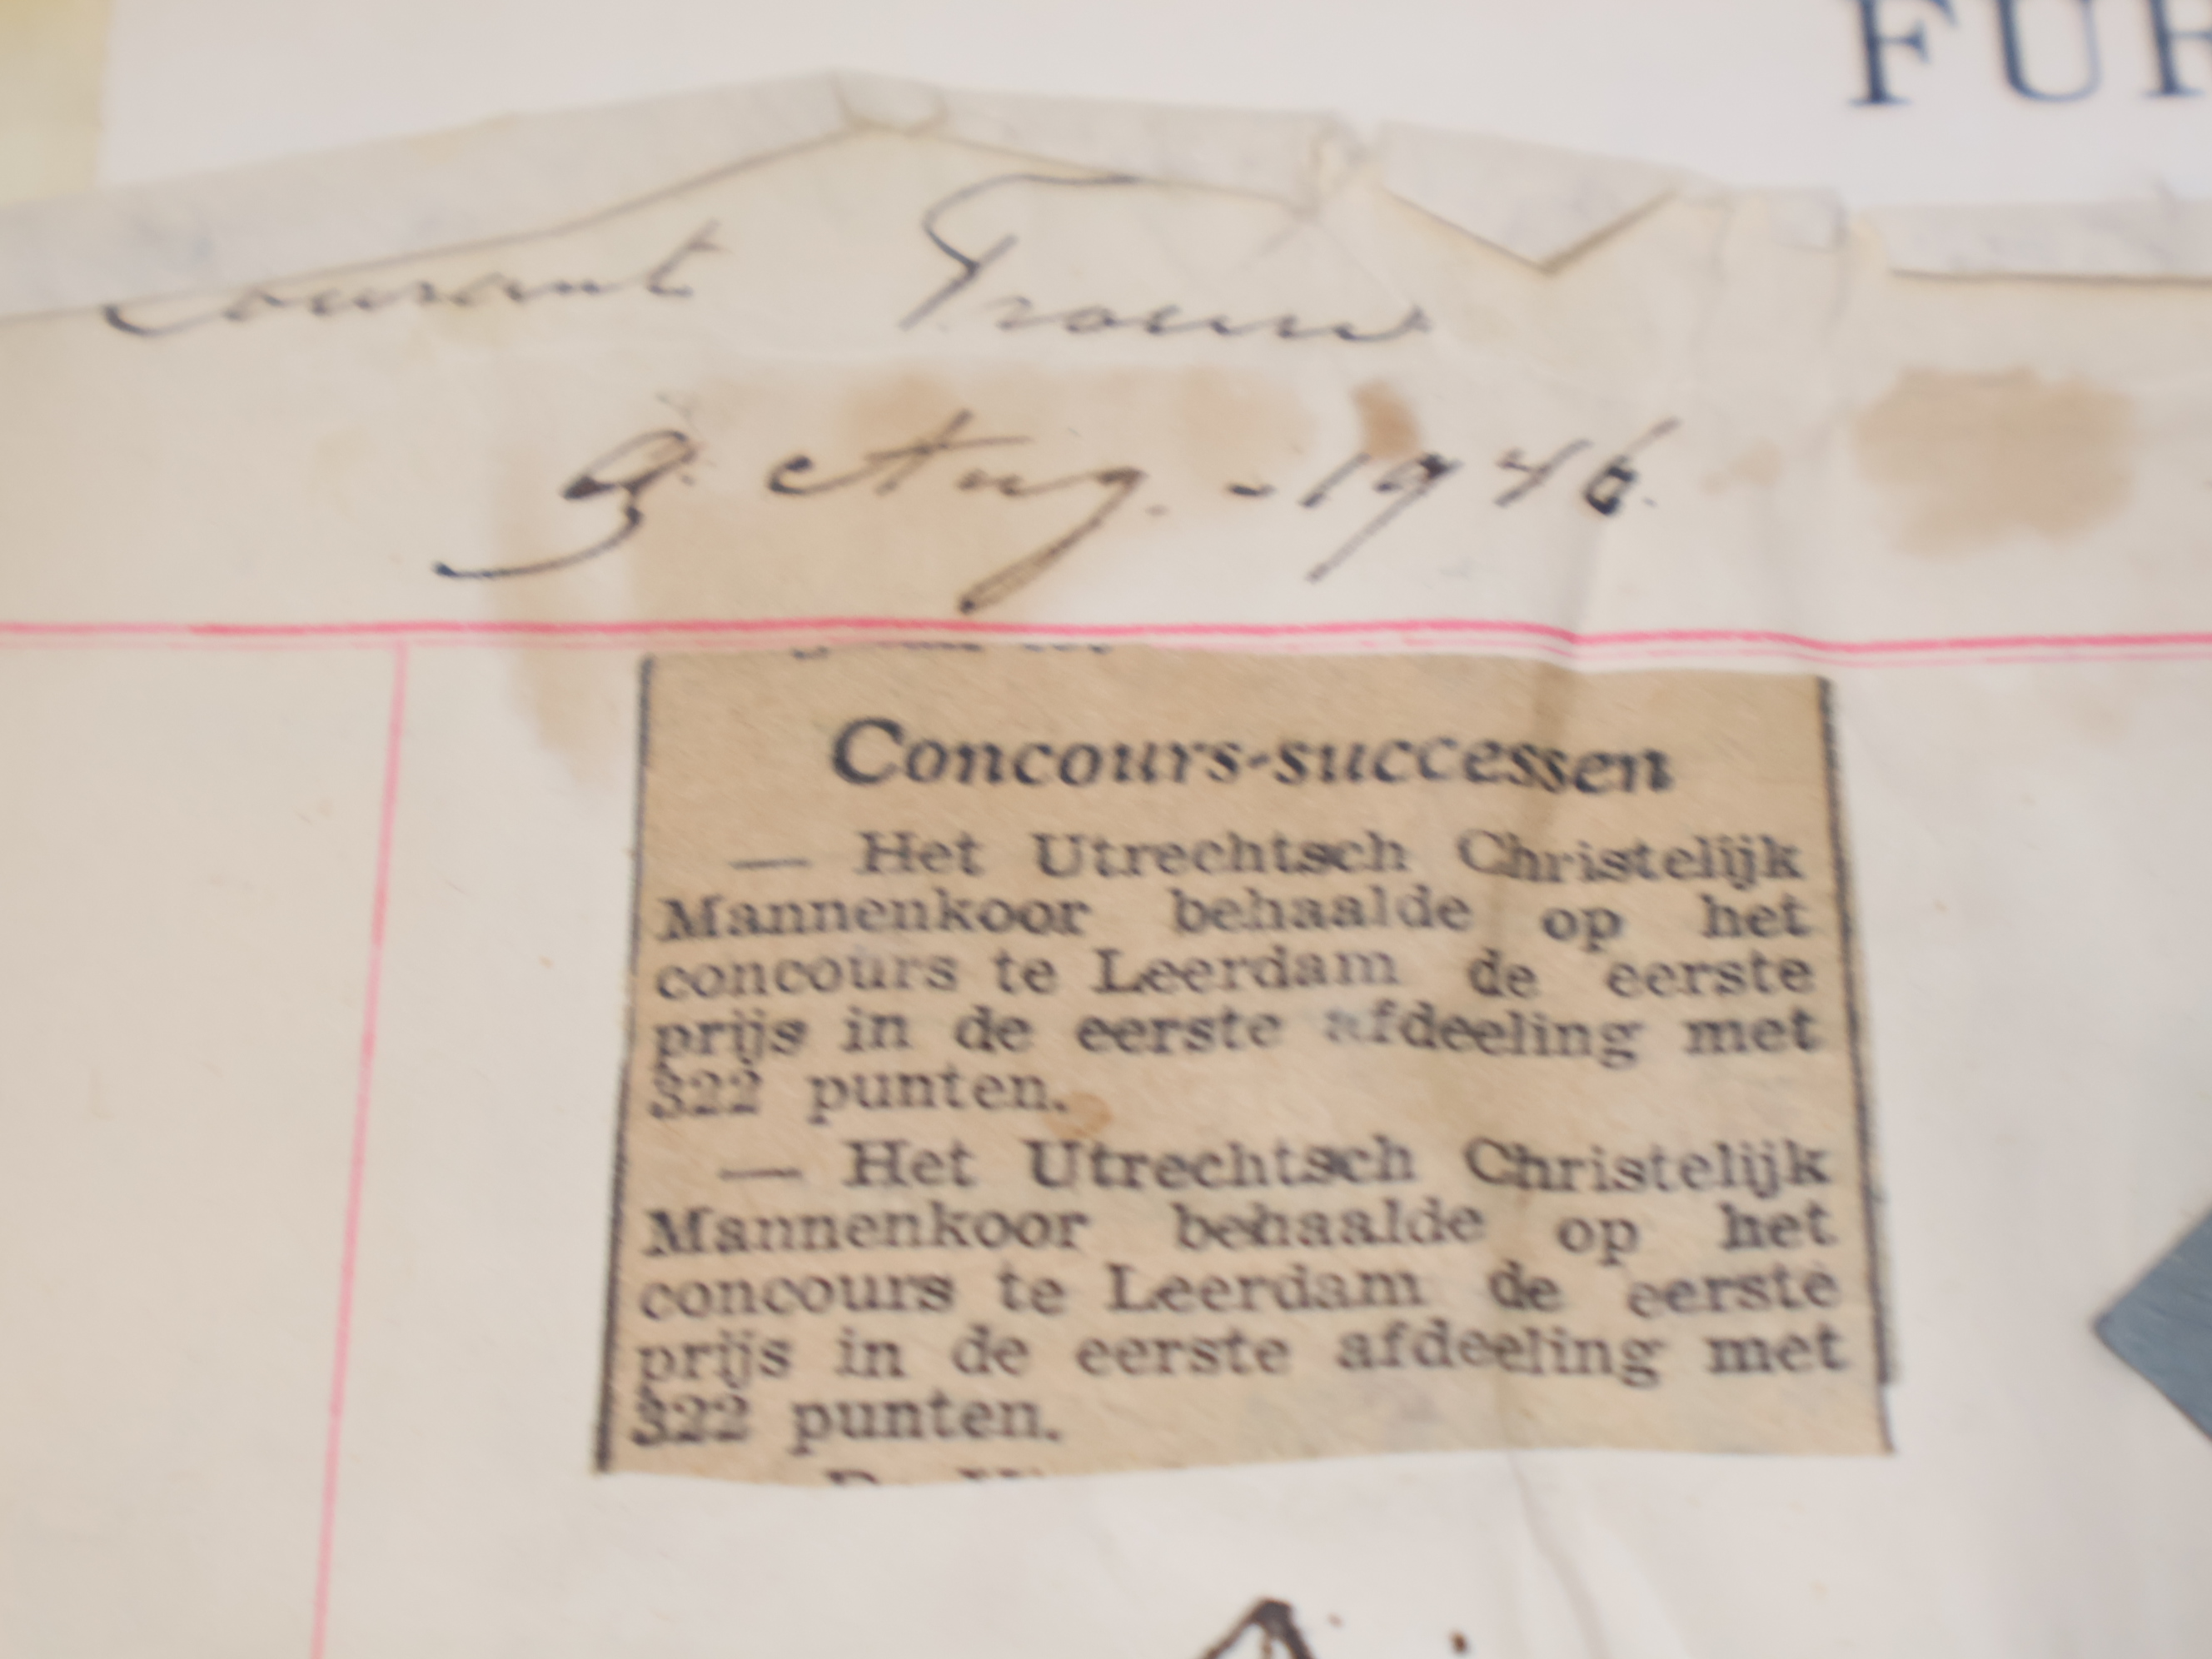 FUR
courant Trouw
9 Aug. - 1946.
Concours-successen
— Het Utrechtsch Christelijk
Mannenkoor behaalde op het
concours te Leerdam de eerste
prijs in de eerste afdeeling met
322 punten.
— Het Utrechtsch Christelijk
Mannenkoor behaalde op het
concours te Leerdam de eerste
prijs in de eerste afdeeling met
322 punten.